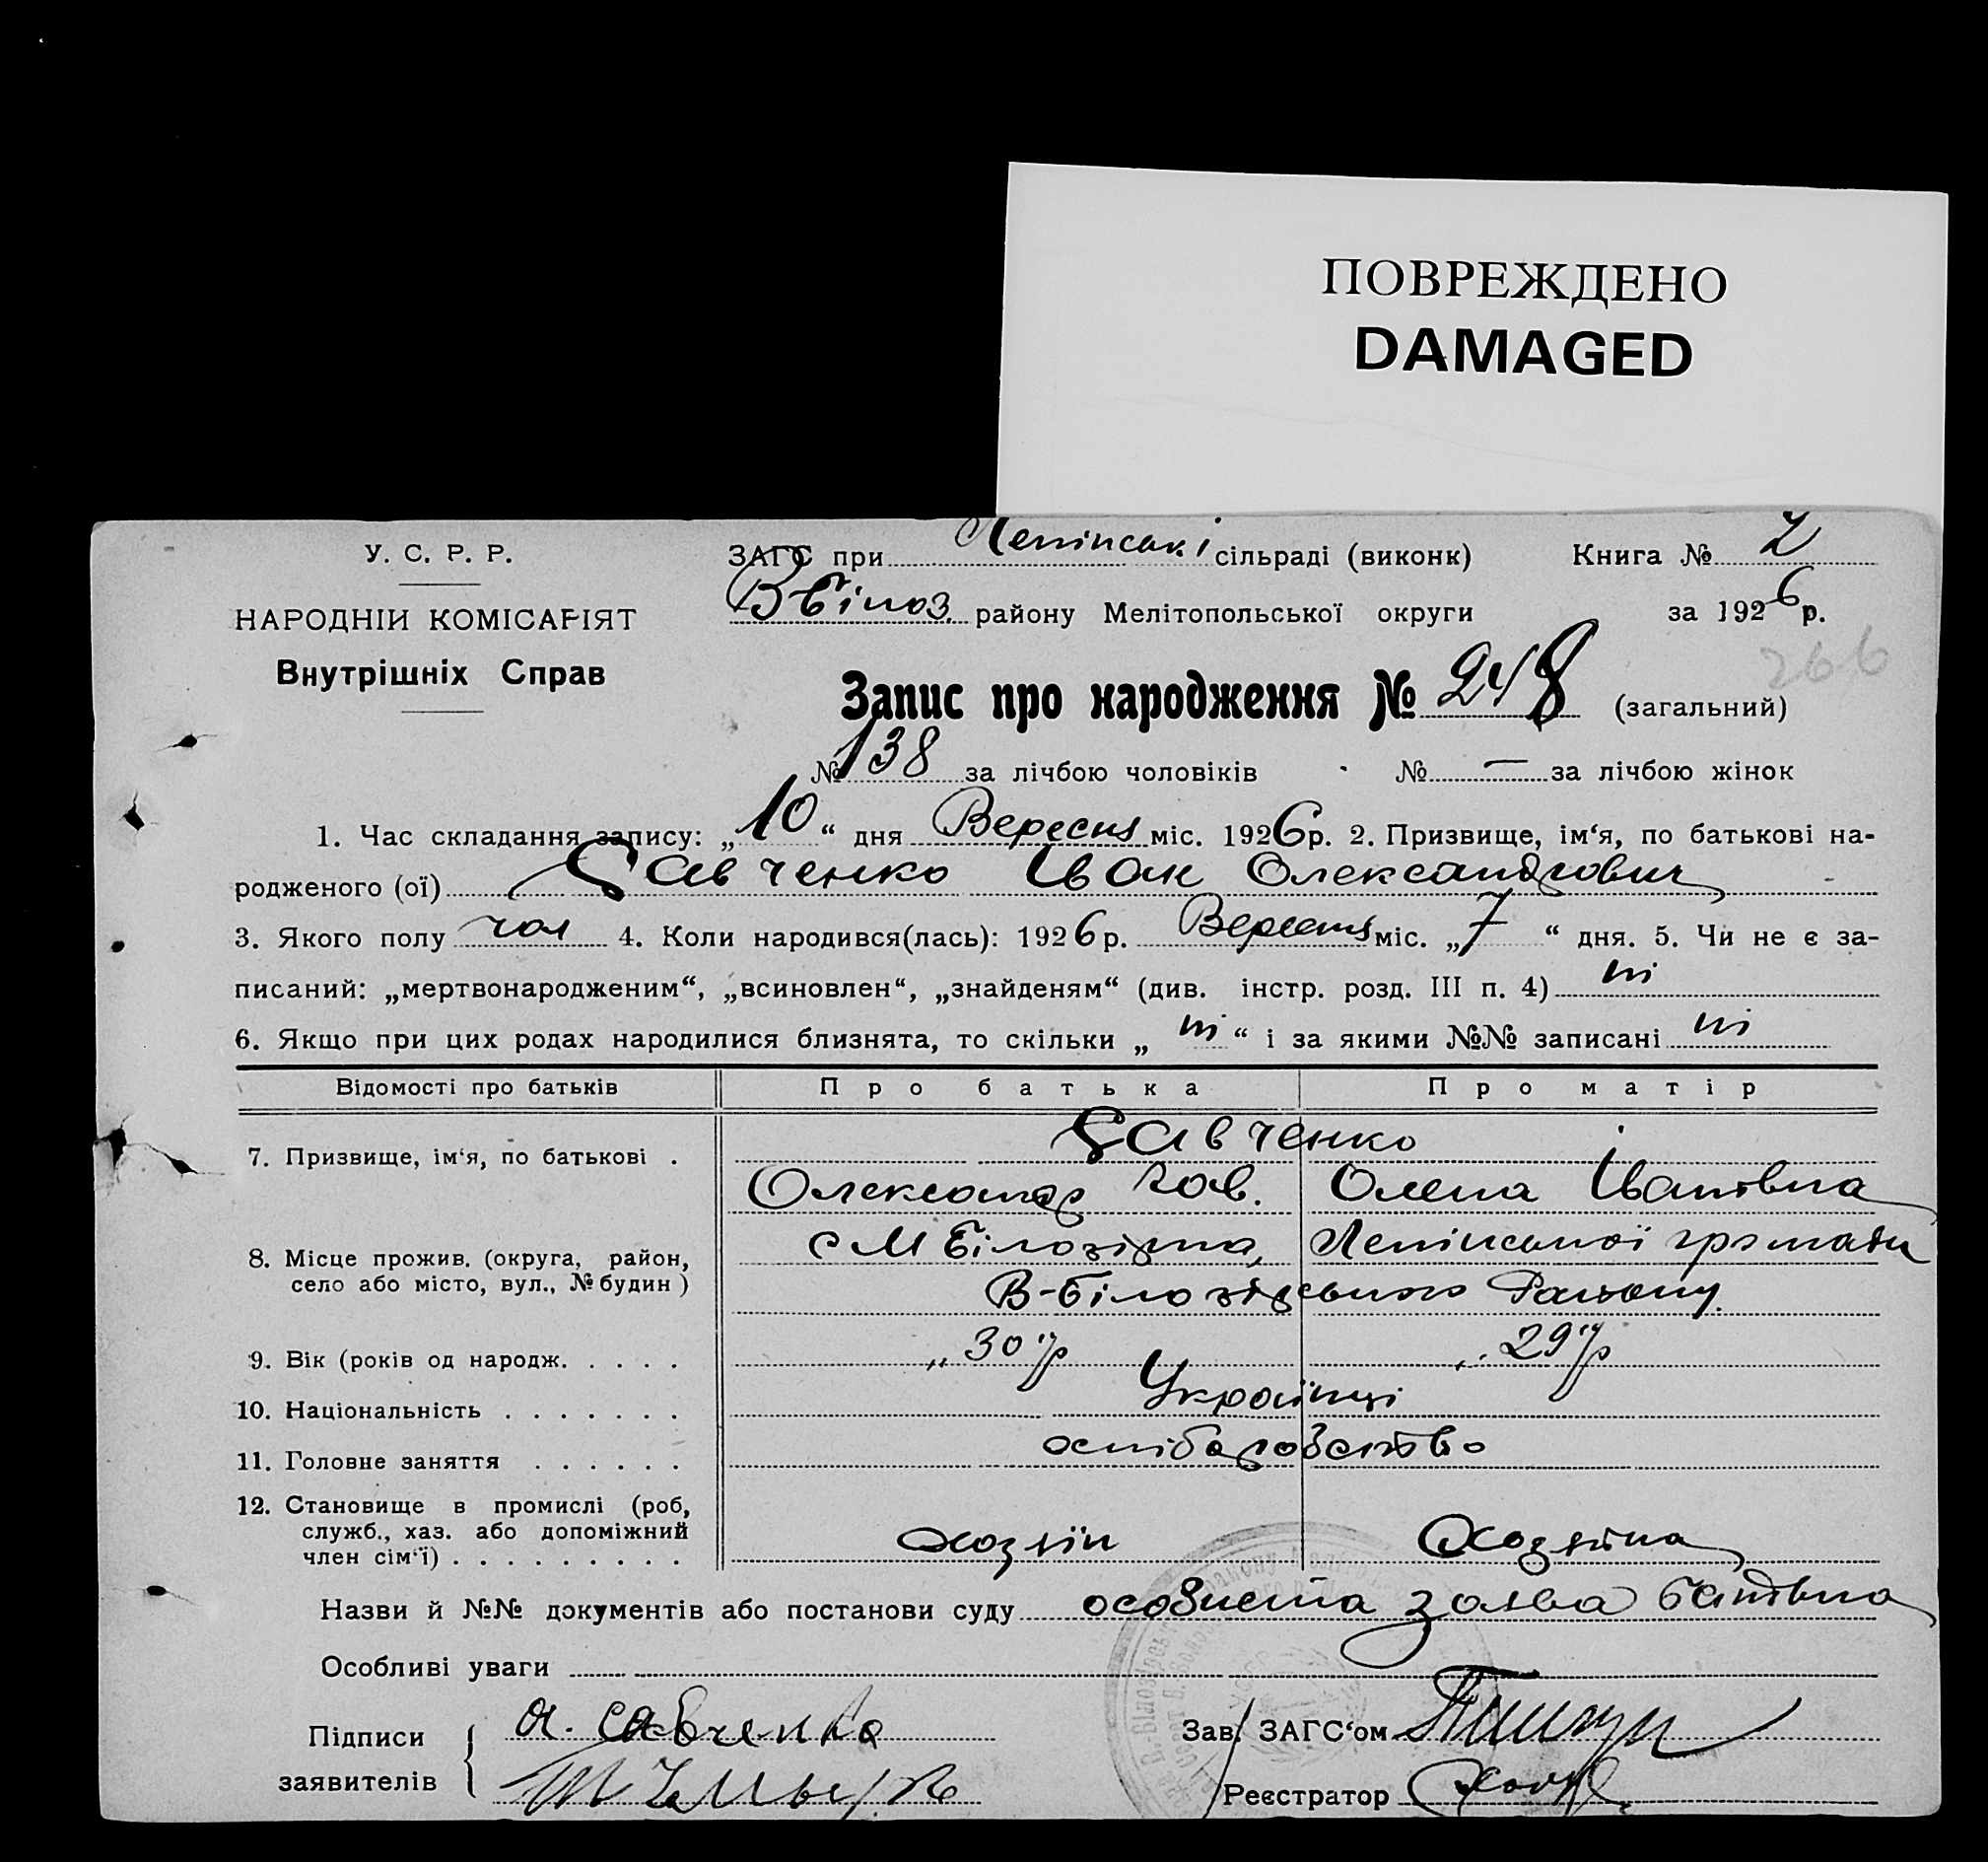 ПОВРЕЖДЕНО
DAMAGED
У. С. Р. Р.
НАРОДНІЙ КОМІСАРІЯТ
Внутрішніх Справ
ЗАГС при Ленінськ. і сільраді (виконк) Книга № 2
В Білоз. району Мелітопольської округи за 1926 р.
266
Запис про народження № 248 (загальний)
№ 138 за лічбою чоловіків № — за лічбою жінок
1. Час складання запису: „10“ дня Вересня міс. 1926 р. 2. Призвище, ім‘я, по батькові на-
родженого (ої) Савченко Іван Олександрович
3. Якого полу чол 4. Коли народився(лась): 1926 р. Вересня міс. „7“ дня. 5. Чи не є за-
писаний: „мертвонародженим“, „всиновлен“, „знайденям“ (див. інстр. розд. III п. 4) ні
6. Якщо при цих родах народилися близнята, то скільки „ ні “ і за якими №№ записані ні
Відомості про батьків Про батька Про матір
7. Призвище, ім‘я, по батькові . Савченко
Олександр Сав. Олена Іванівна
8. Місце прожив. (округа, район, село або місто, вул., № будин) с М Білозірка, Ленінської громади
В-Білозірського Району.
9. Вік (років од народж. . . . . „ 30 р „ 29 р
10. Національність . . . . . . . Українці
11. Головне заняття . . . . . .
12. Становище в промислі (роб, служб., хаз. або допоміжний член сім‘ї) . . . . . . . . . хозяїн Хозяйка
Назви й №№ документів або постанови суду особиста заява
Особливі уваги
Підписи заявителів а. савченко
Зав. ЗАГС‘ом
Реєстратор